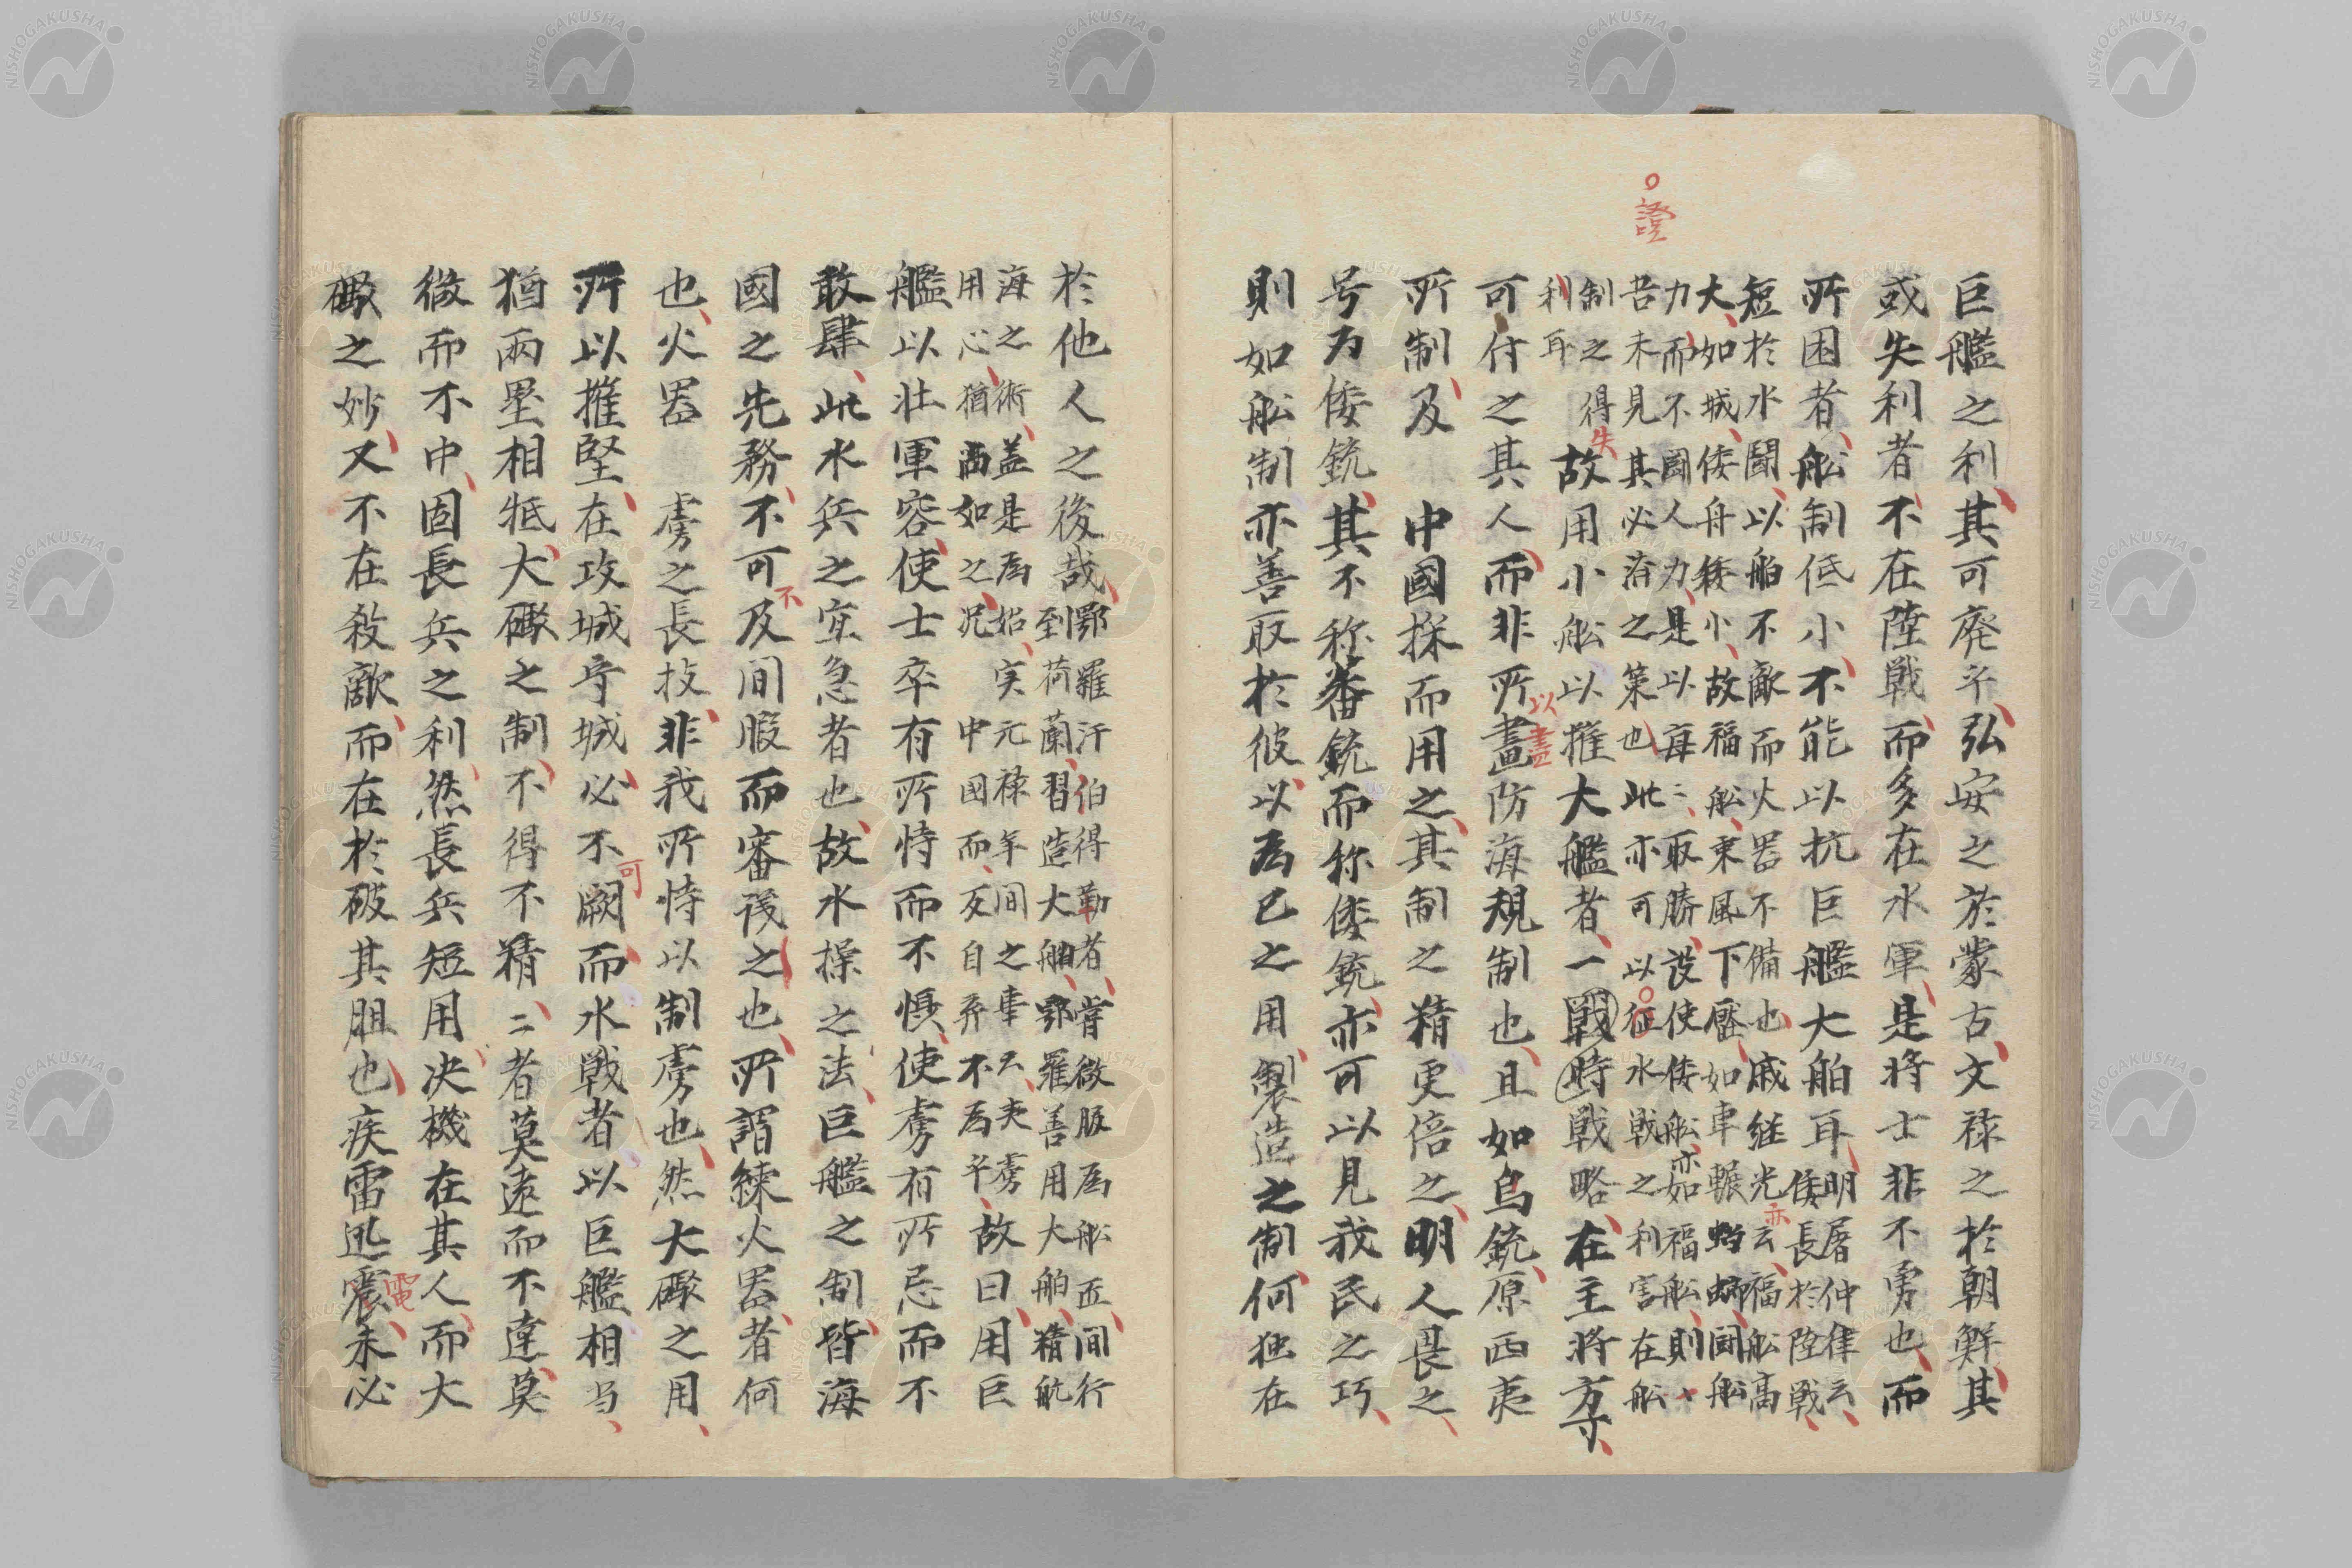 巨艦之利其可廃乎弘安之於蒙古文禄之於朝鮮其
或失利者不在陸戦而多在水軍是将士非不勇也而
所困者舩制低小不能以抗巨艦大舶耳明屠仲律云
倭長於陸戦
短於水闘以舶不敵而火器不備也戚継光云福舩高
大如城倭舟矮小故福舩乗風下壓如車輾螳螂闘舩
力而不闘人力是以每々取勝設使倭舩亦如福舩則
吾未見其必済之策也此亦可以征水戦之利害在舩
制之得
利耳
失
證
亦
故用小舩以摧大艦者一戦時戦略在主将方寸
可付之其人而非所畫防海規制也且如鳥銃原西夷
以
盡
所制及 中國採而用之其制之精更倍之明人畏之
号为倭銃其不称蕃銃而称倭銃亦可以見我民之巧
則如舩制亦善取於彼以為己之用製造之制何独在
於他人之後哉鄂羅汗伯得勒者嘗微服為舩匠間行
到荷蘭習造大舶鄂羅善用大舶精航
海之術蓋是為始実元禄年間之事云夫虜
用心猶尚如之况 中國而反自棄不為乎故曰用巨
艦以壮軍容使士卒有所恃而不惧使虜有所忌而不
敢肆此水兵之宜急者也故水操之法巨艦之制皆海
國之先務不可及間暇而審後之也所謂練火器者何
不
也火器 虜之長技非我所恃以制虜也然大礟之用
所以摧堅在攻城守城必不闕而水戦者以巨艦相当
可
猶兩壘相牴大礟之制不得不精二者莫遠而不達莫
微而不中固長兵之利然長兵短用决機在其人而大
礟之妙又不在殺敵而在於破其胆也疾雷迅震未必
電
NISHOGAKUSHA